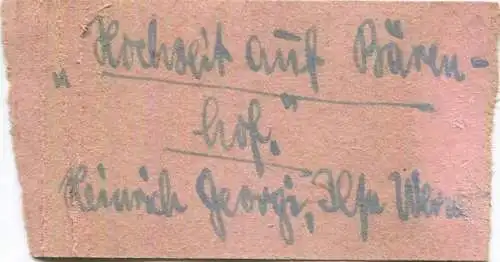 „Hochzeit auf Bären-
hof."
Heinrich George, Ilse Wern